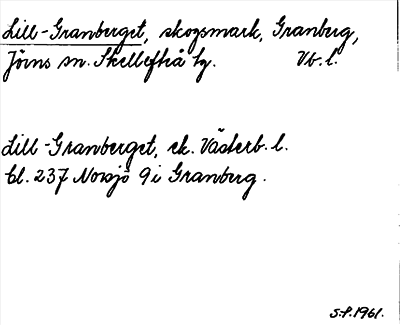 Lill-Granberget, skogsmark, Granberg,
Jörns sn. Skellefteå tg. Vb.l.
Lill-Granberget, ek. Västerb. l.
bl. 237 Norsjö 9i Granberg.
S.P. 1961.